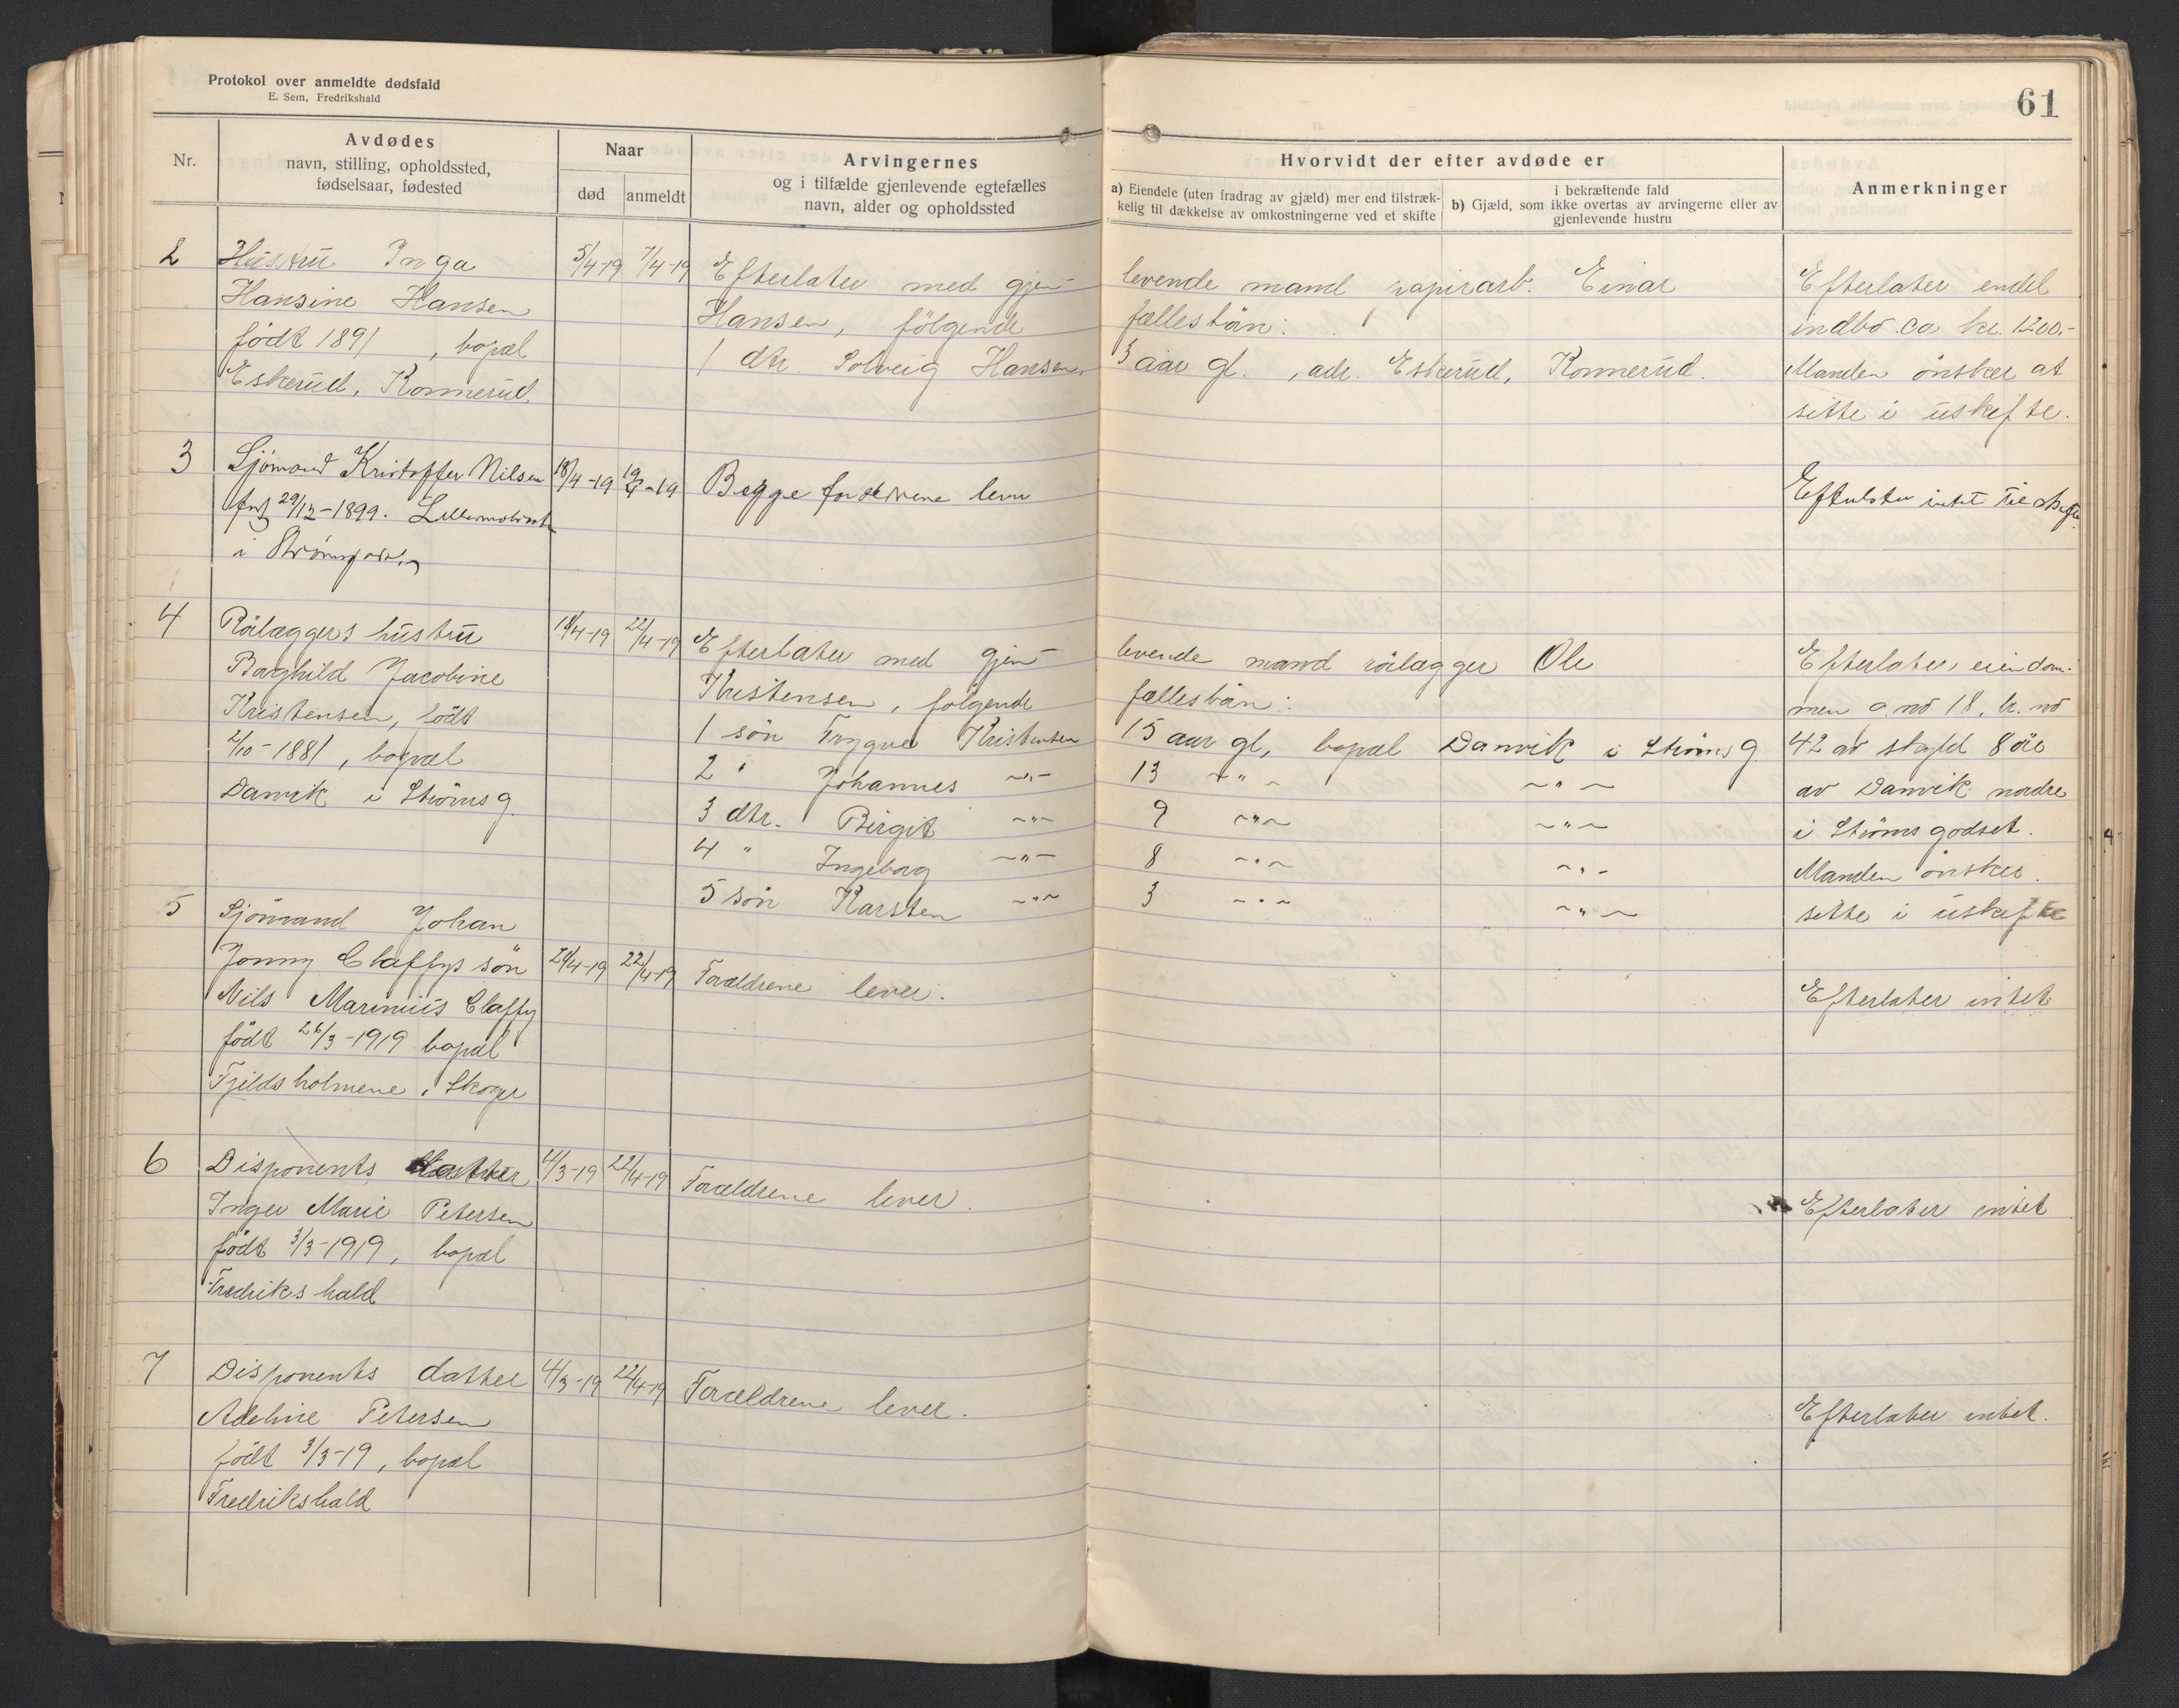 Protokol over anmeldte dødsfald
E. Sem, Fredrikshald
61
Nr.
Avdødes
navn, stilling, opholdssted,
fødselsaar, fødested
Naar
død
anmeldt
Arvingernes
og i tilfælde gjenlevende egtefælles
navn, alder og opholdssted
Hvorvidt der efter avdøde er
a) Eiendele (uten fradrag av gjæld) mer end tilstræk-
kelig til dækkelse av omkostningerne ved et skifte
i bekræftende fald
b) Gjæld, som ikke overtas av arvingerne eller av
gjenlevende hustru
Anmerkninger
2
Hustru Inga
Hansine Hansen
født 1891 , bopæl
Eskerud, Konnerud.
5/4-19
7/4-19
Efterlater med gjen-
levende mand papirarb. Einar
Hansen, følgende
fællesbarn:
1 dtr. Solveig Hansen,
3 aar gl. , adr. Eskerud, Konnerud.
Efterlater endel
indbo ca kr. 1200,-
Manden ønsker at
sitte i uskifte.
3
Sjømand Kristoffer Nilsen
29/12-1899.
i
18/4-19
19/4-19
Begge forældrene lever
Efterlater intet til skifte.
4
Rörlæggers hustru
Borghild Jacobine
Kristensen, født
2/10-1881, bopæl
Danvik i Strømsg.
18/4-19
22/4-19
Efterlater med gjen-
levende mand rörlægger Ole
Kristensen, følgende
fællesbarn:
1 søn Trygve Kristensen
15 aar gl, bopæl Danvik i Strømsg.
2 " Johannes -"-
13 -"- -"-
3 dtr. Birgit -"-
9 -"- -"-
4 " Ingeborg -"-
8 -"- -"-
5 søn Karsten -"-
3 -"- -"-
Efterlater, eiendom-
men g. no 18, br. no
42 av skyld 8 øre
av Danvik nordre
i Strømsgodset.
Manden ønsker
sitte i uskifte
5
Sjømand Johan
Jonny Claffys søn
Nils Marinius Claffy
født 26/3-1919 bopæl
Fjeldsholmene i Skoger
20/4-19
22/4-19
Forældrene lever.
Efterlater intet
6
Disponents datter
Inger Marie Petersen
født 3/3-1919, bopæl
Fredrikshald
4/3-19
22/4-19
Forældrene lever.
Efterlater intet
7
Disponents datter
Adeline Petersen
født 3/3-19, bopæl
Fredrikshald
4/3-19
22/4-19
Forældrene lever.
Efterlater intet.